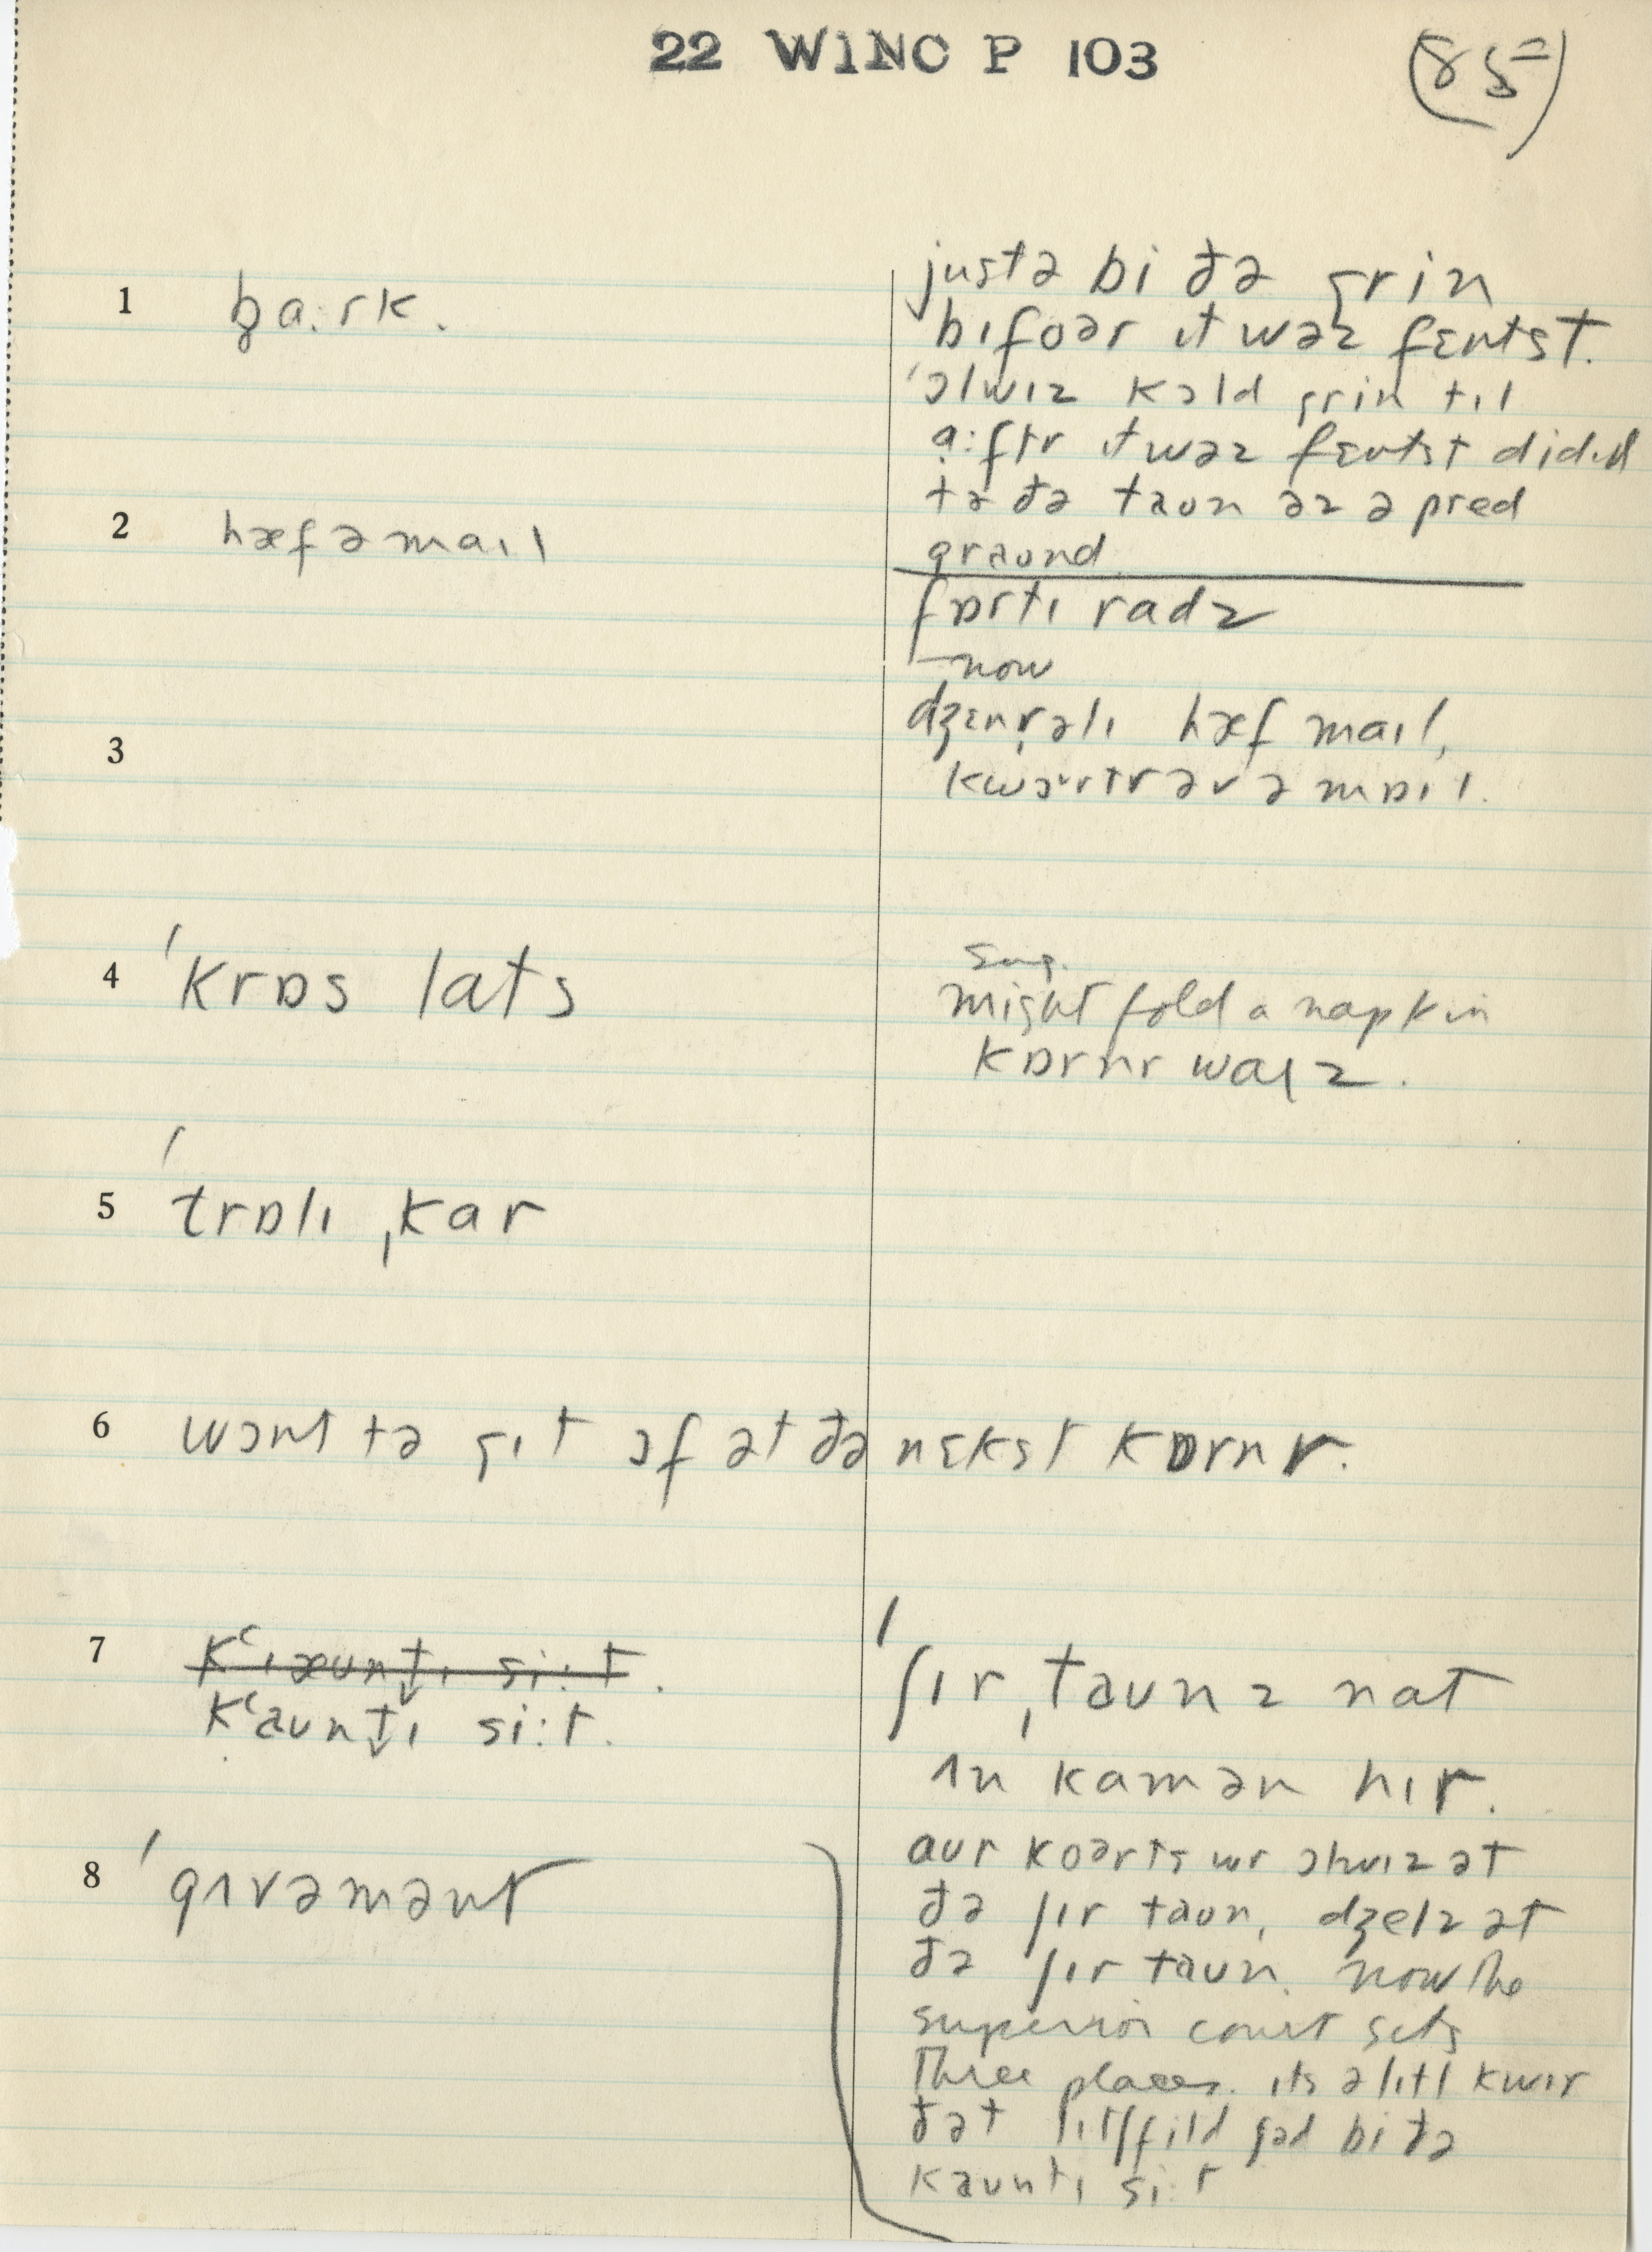 22 WINC P 103
(85)
1 ba:rk.
justə bi ðə grin
bɪfoər ɪt wəz fɛntst.
'ɔlwɪz kɔld grin tɪl
a:ftr ɪt wəz fɛntst
tə ðə taun əz ə
graund
2 hæf ə maɪl
fɒrtɪ radz
now
3
dʒɛnrəlɪ hæf maɪl,
kwɔrtr əv ə mɒɪl.
4 'krɒs lats
sug.
might fold a napkin
kɒrnr waɪz.
5 'trɒlɪ ˌkar
6 wɔnt tə gɪt ɔf ət ðə nɛkst kɒrnr.
7 kʻɪæuntɪ si:t.
kʻauntɪ si:t.
'ʃɪr ˌtaunz nat
ɪn kamən hɪr.
8 'gʌvəmənt
aur koərts wr ɔlwɪz ət
ðə ʃɪr taun, dʒelz ət
ðə ʃɪr taun. now the
superior court sets
Three places. ɪts ə lɪtl kwɪr
ðət lɪtʃfild ʃəd bi ðə
kauntɪ si:t